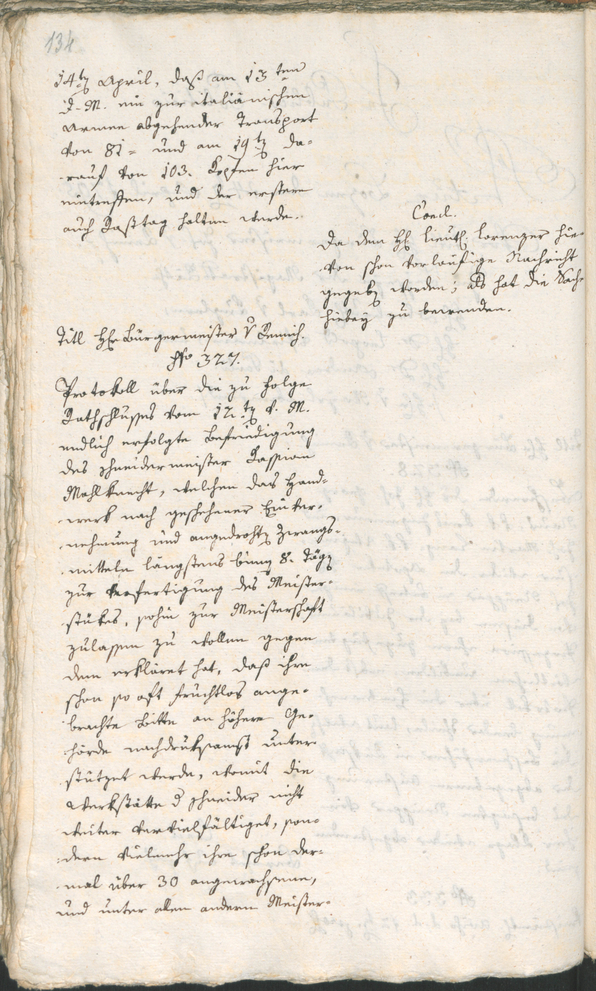 134
14t. April, daß am 13ten
d. M. ein zur italiänischen
Armee abgehender Transport
von 81 = und am 19t. da-
rauf von 103. Köpfen hier
eintreffen, und der erstere
auch Rasttag halten werde.
Concl.
Da dem H. Lieut. Lorenzer hie-
von schon vorläufige Nachricht
gegeben worden; als hat die Sach
hiebey zu bewenden.
Titl. Hr. Bürgermeister v.
No. 327.
Protokoll über die zu Folge
Rathschlusses vom 12t. d. M.
endlich erfolgte Befriedigung
des Schneidermeister Cassian
Mahlknecht, welchen das Hand-
werk nach geschehener Einver-
nehmung und angedroht. Zwangs-
mitteln längstens binn. 8. Täg.
zur Verfertigung des Meister-
stükes, sohin zur Meisterschaft
zulassen zu wollen gegen
dem erkläret hat, daß ihre
schon so oft fruchtlos ange-
brachte Bitte an höhere Be-
hörde nachdruksamst unter-
stützet werde, womit die
Werkstätte d. Schneider nicht
weiter vervielfältiget, son-
dern vielmehr ihre schon der-
mal über 30 angewachsene,
und unter allen anderen Meister-